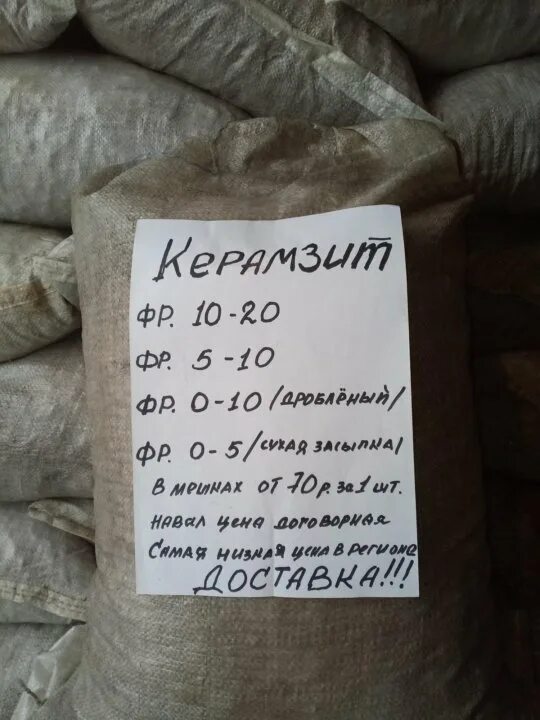 Керамзит
фр. 10-20
фр. 5-10
фр. 0-10 /дроблёный/
фр. 0-5 /сухая засыпка/
В мешках от 70 р. за 1 шт.
Навал цена договорная
Самая низкая цена в регионе
ДОСТАВКА!!!